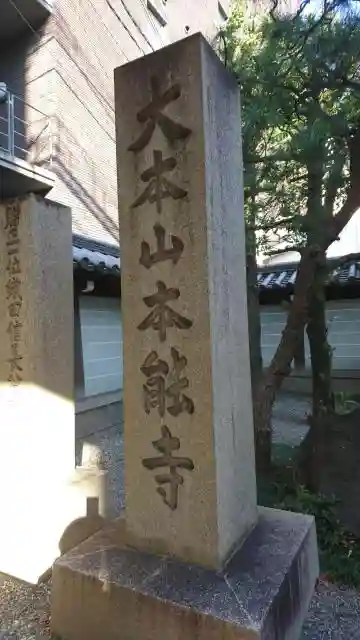 大本山本能寺
贈正一位織田信長公